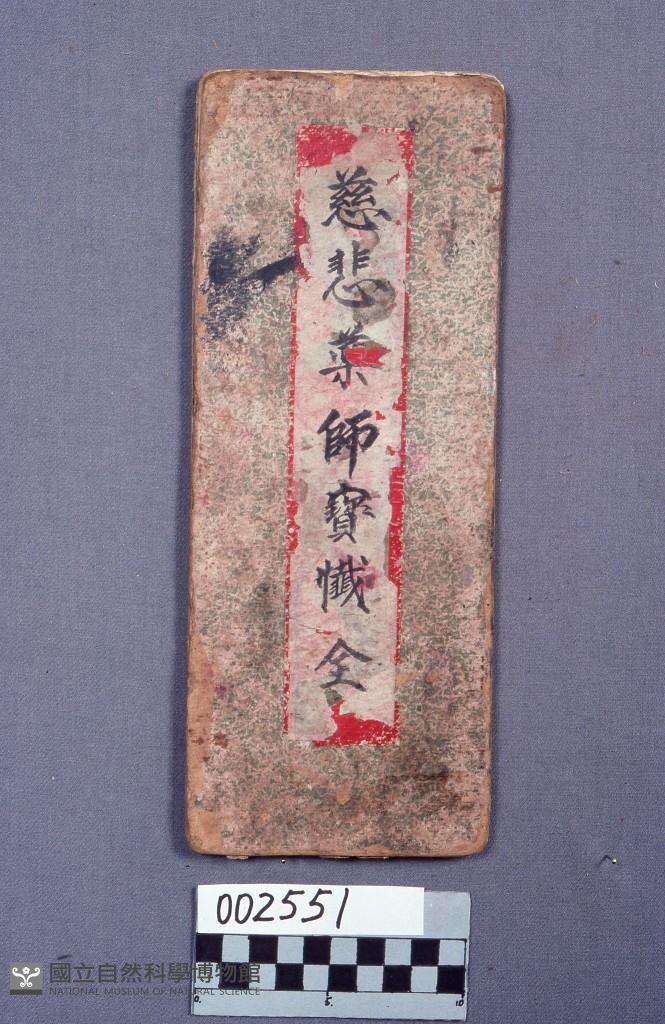 慈悲藥師寶懺全
002551
0. 5. 10
國立自然科學博物館
NATIONAL MUSEUM OF NATURAL SCIENCE